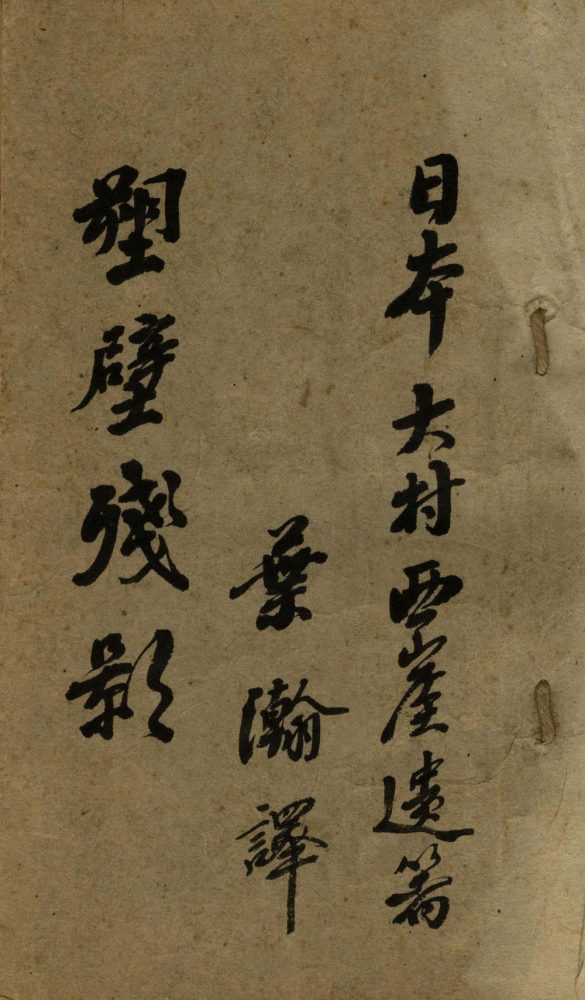 日本大村西崖遺箸
葉瀚譯
塑壁殘影